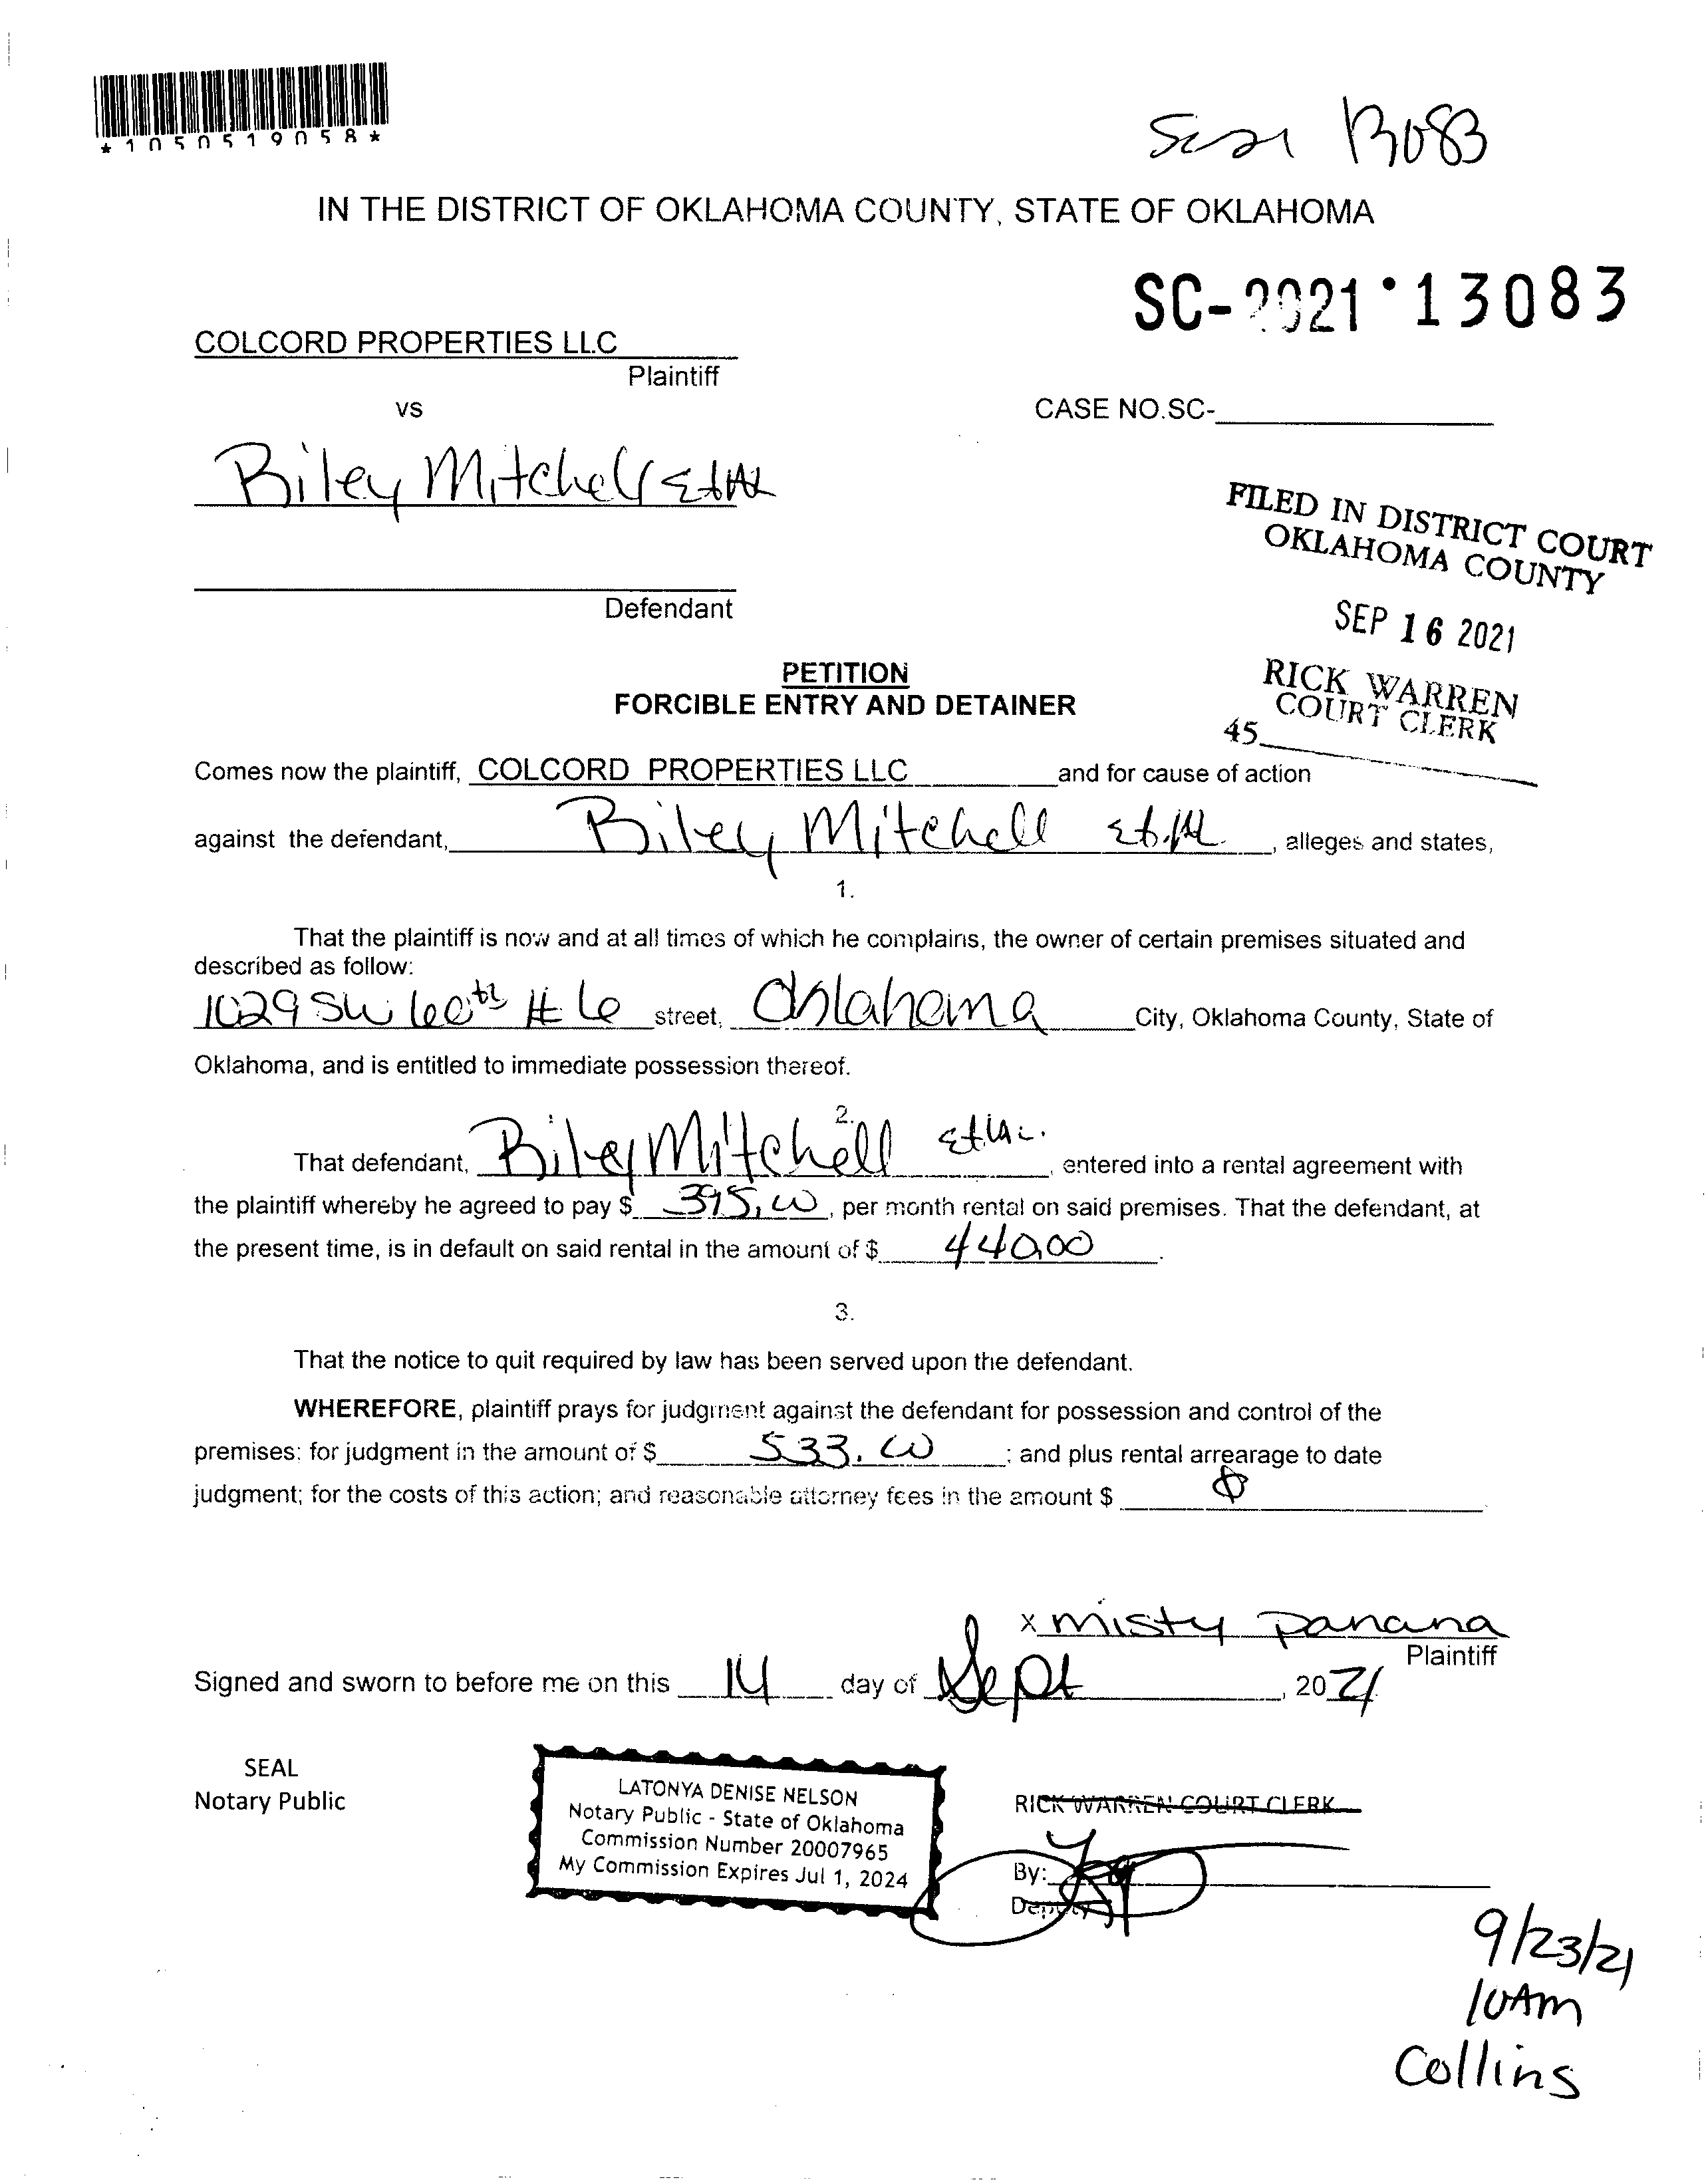 *1050519058*
13083
IN THE DISTRICT OF OKLAHOMA COUNTY, STATE OF OKLAHOMA
SC-2021·13083
COLCORD PROPERTIES LLC
Plaintiff
vs
CASE NO.SC-
Riley Mitchell Et Al
FILED IN DISTRICT COURT
OKLAHOMA COUNTY
Defendant
SEP 16 2021
PETITION
RICK WARREN
FORCIBLE ENTRY AND DETAINER
COURT CLERK
45
Comes now the plaintiff, COLCORD PROPERTIES LLC and for cause of action
against the defendant, Riley Mitchell Et.Al , alleges and states,
1.
That the plaintiff is now and at all times of which he complains, the owner of certain premises situated and
described as follow:
1029 SW 60th # 6 street, Oklahoma City, Oklahoma County, State of
Oklahoma, and is entitled to immediate possession thereof.
2.
That defendant, Riley Mitchell Et Al. , entered into a rental agreement with
the plaintiff whereby he agreed to pay $ 395.00 , per month rental on said premises. That the defendant, at
the present time, is in default on said rental in the amount of $ 440.00 .
3.
That the notice to quit required by law has been served upon the defendant.
WHEREFORE, plaintiff prays for judgment against the defendant for possession and control of the
premises: for judgment in the amount of $ 533.00 ; and plus rental arrearage to date
judgment; for the costs of this action; and reasonable attorney fees in the amount $ 0
x misty panana
Plaintiff
Signed and sworn to before me on this 14 day of Sept , 2021
SEAL
Notary Public
LATONYA DENISE NELSON
Notary Public - State of Oklahoma
Commission Number 20007965
My Commission Expires Jul 1, 2024
RICK WARREN COURT CLERK
By:
Deputy
9/23/21
10Am
Collins